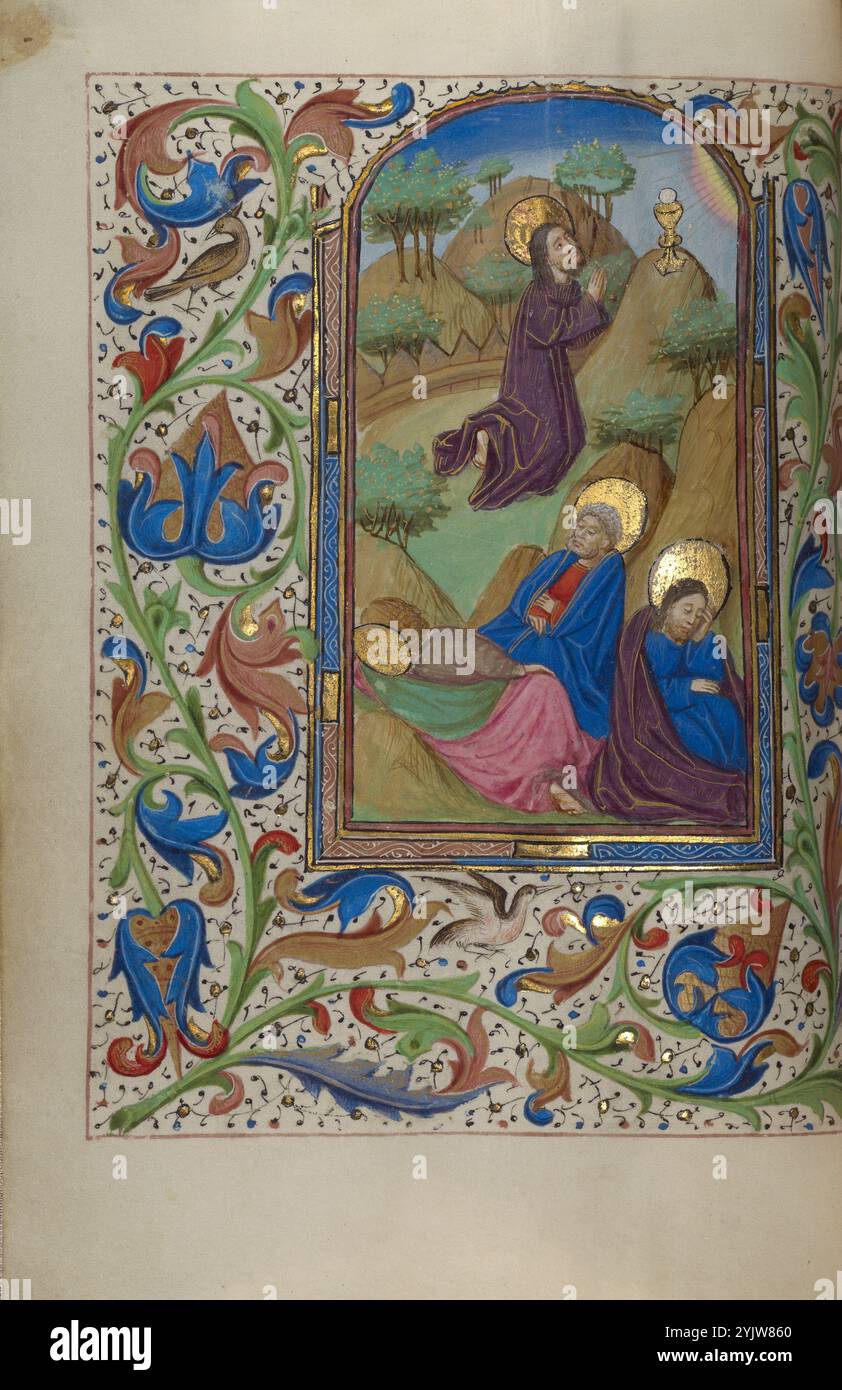 alamy
Image ID: 2YJW860
www.alamy.com